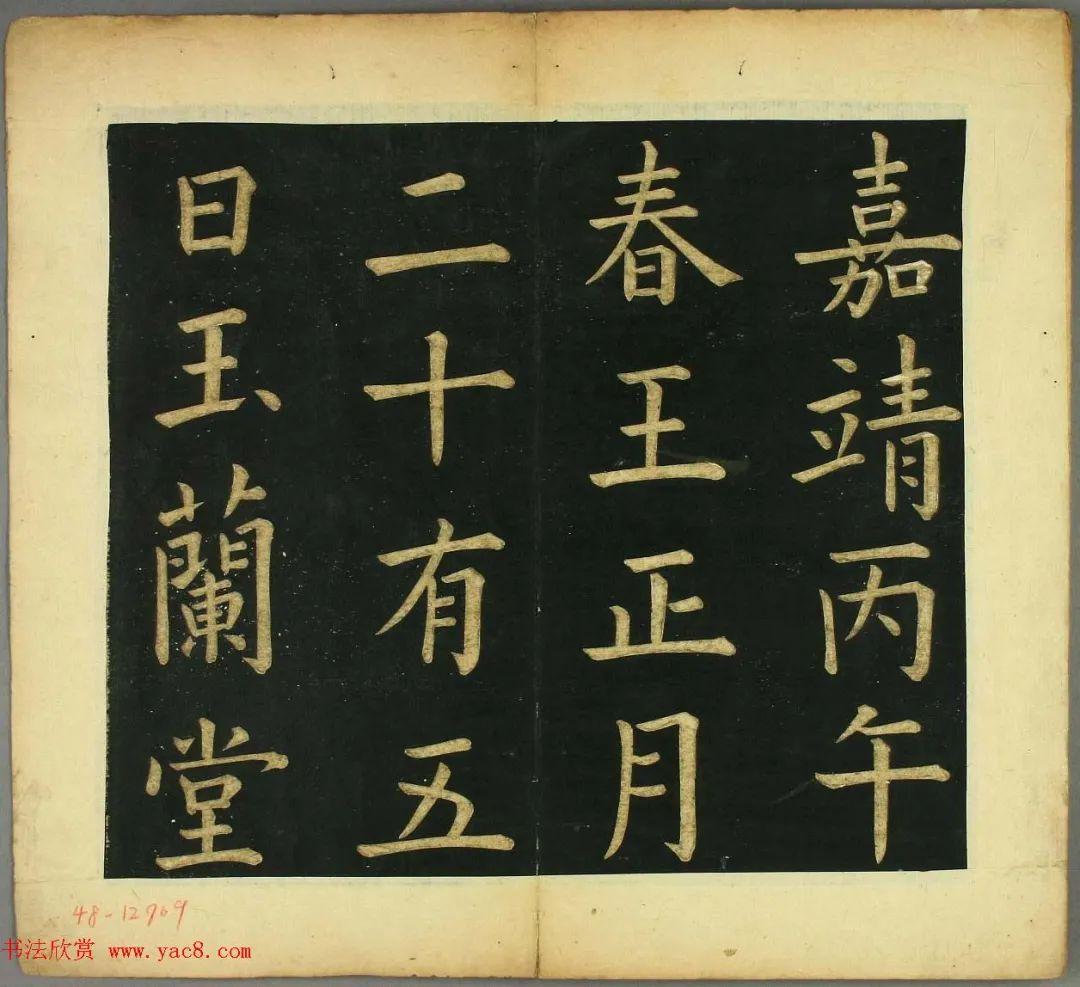 嘉靖丙午
春王正月
二十有五
日玉蘭堂
48-12709
书法欣赏 www.yac8.com